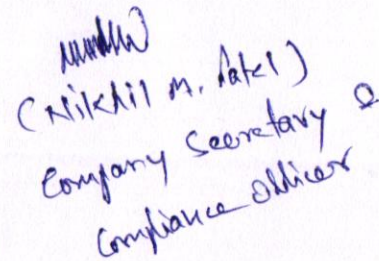 (Nikhil M. Patel)
Company Secretary &
Compliance Officer